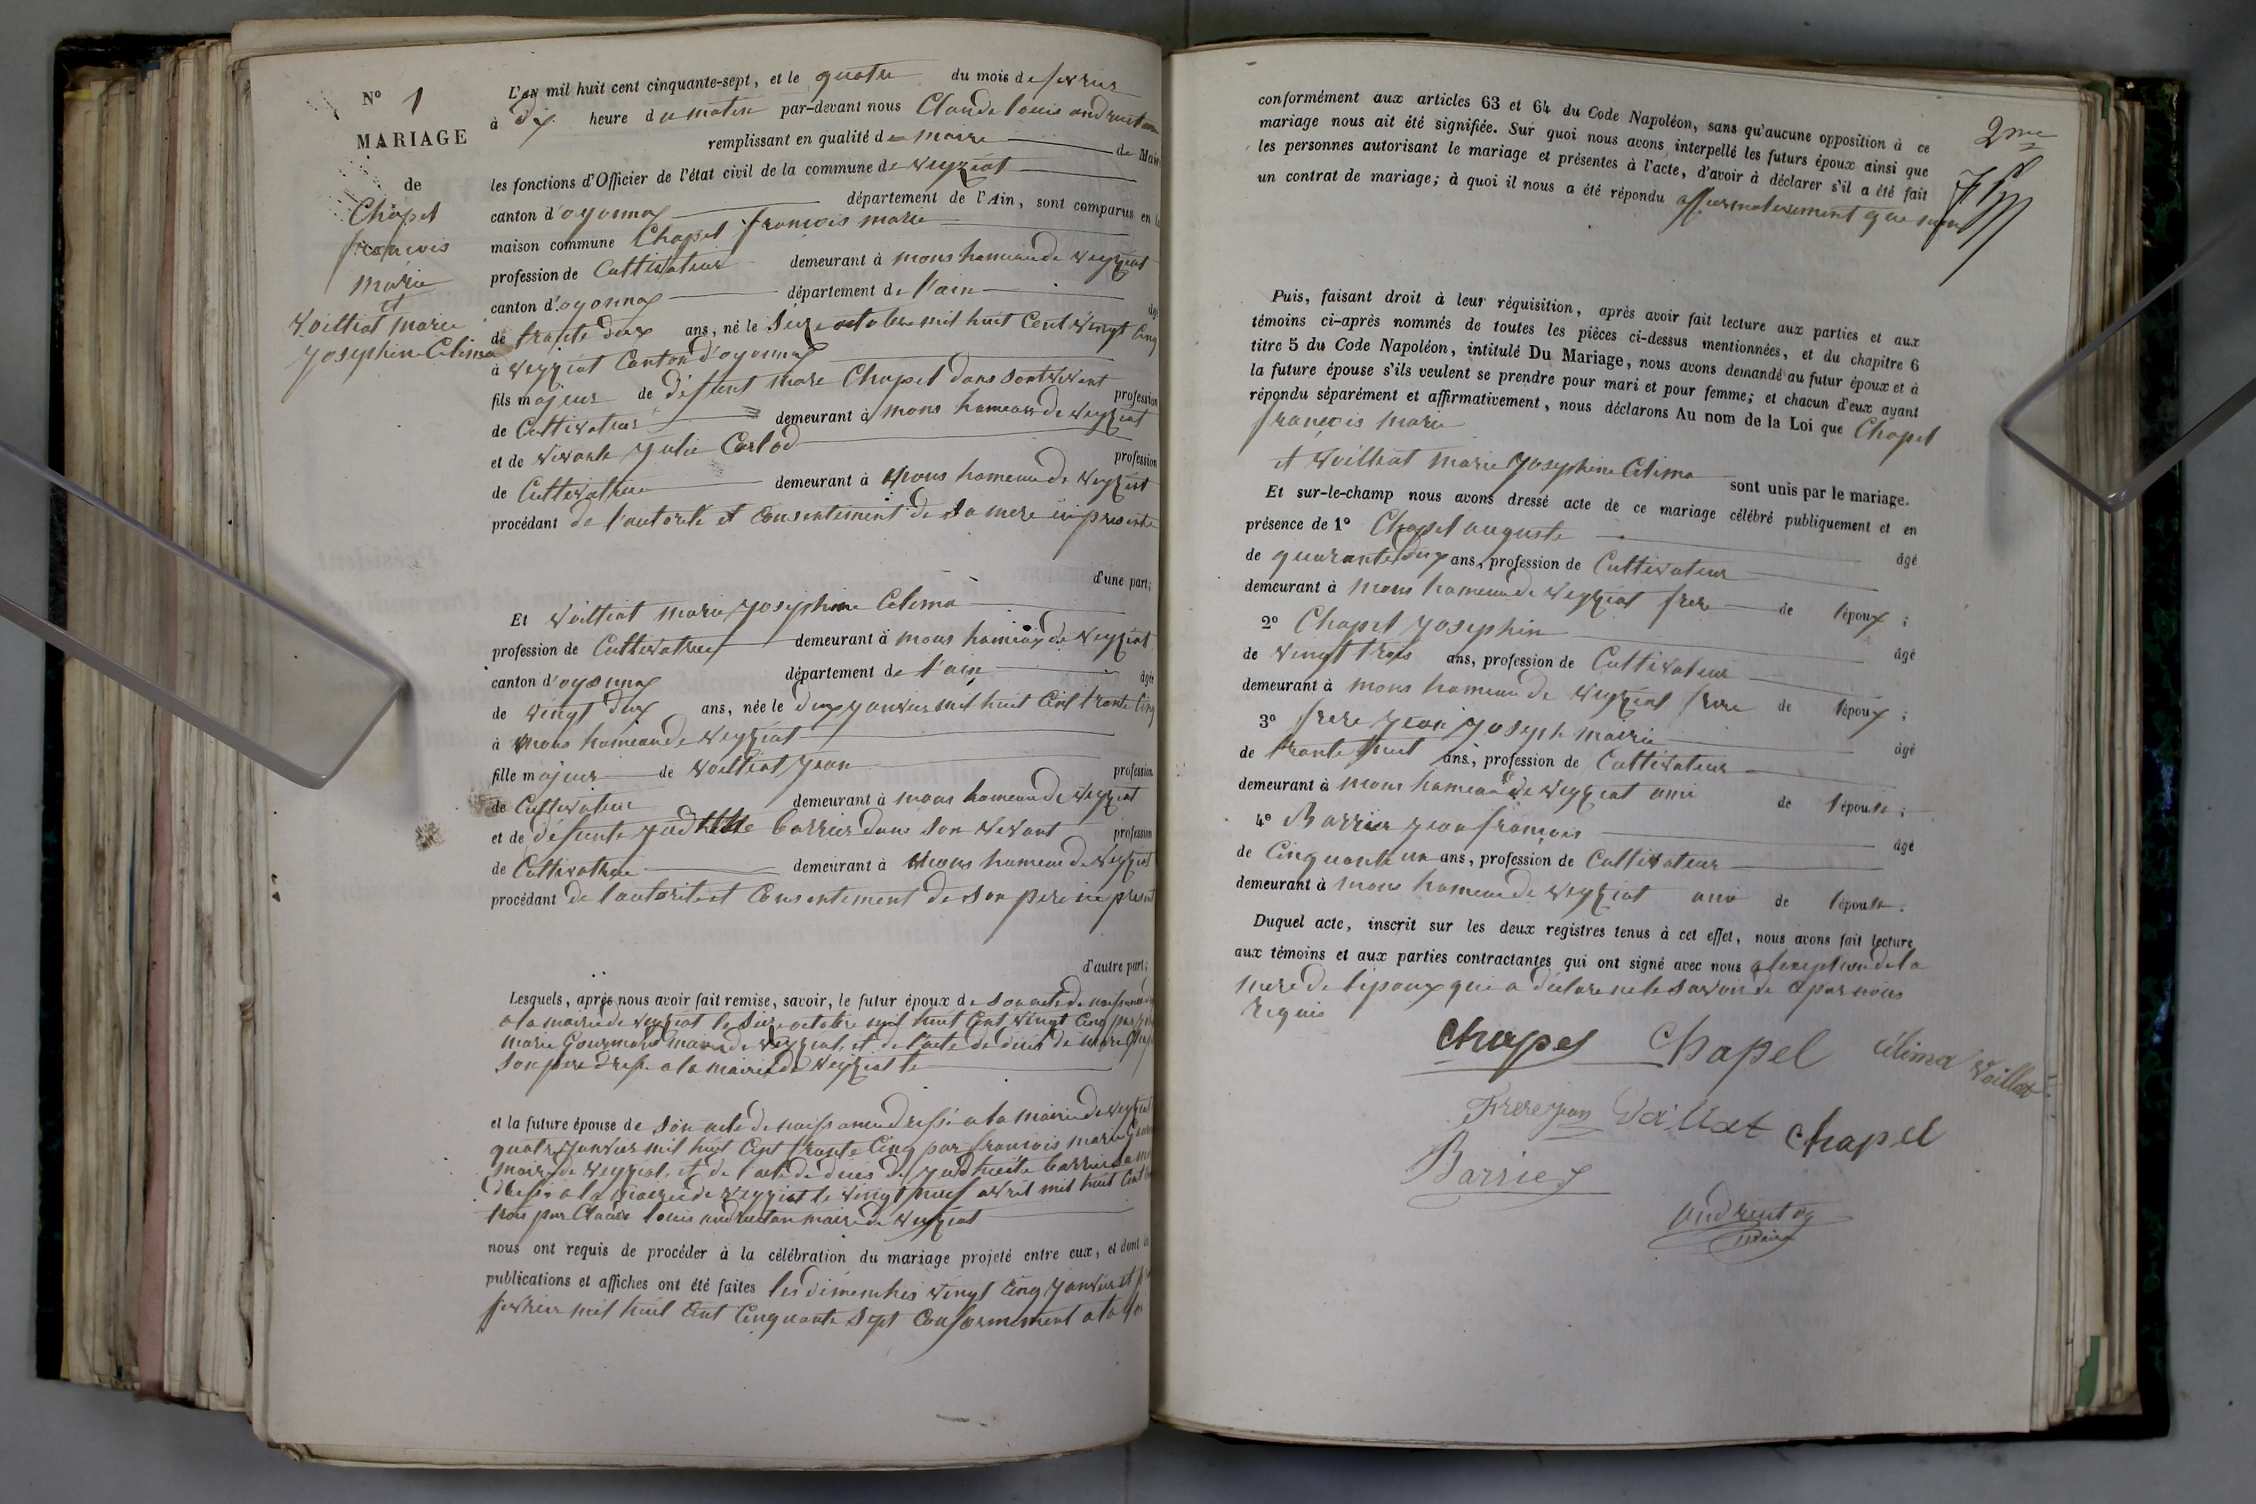 Nº 1
MARIAGE
de
Chapel
francois
Marie
et
Voilliat marie
Josephine Celima
L'an mil huit cent cinquante-sept, et le quatre du mois de fevrier
à dix heure du matin par-devant nous Claude louis andruetan
remplissant en qualité de maire de Maire
les fonctions d'Officier de l'état civil de la commune de veyziat
canton d'oyonnax département de l'Ain, sont comparus en la
maison commune Chapel francois marie
profession de Cultivateur demeurant à mons hameau de veyziat
canton d'oyonnax département de l'ain âgé
de trante deux ans, né le seize octobre mil huit Cent vingt Cinq
à veyziat Canton d'oyonnax
fils majeur de défunt marc Chapel dans sont vivant profession
de Cultivateur demeurant à mons hameau de veyziat
et de vivante Julie Carlod profession
de Cultivatrice demeurant à mons hameau de veyziat
procédant de l'autorité et Consentement de sa mere ici presente
d'une part;
Et Voilliat marie Josephine Celima
profession de Cultivatrice demeurant à mons hameau de veyziat
canton d'oyonnax département de l'ain âgée
de vingt deux ans, née le deux janvier mil huit Cent trante Cinq
à mons hameau de veyziat
fille majeur de Voilliat Jean profession
de Cultivateur demeurant à mons hameau de veyziat
et de defunte Judthitte barrier dans son vivant profession
de Cultivatrice demeurant à mons hameau de veyziat
procédant de l'autorité et Consentement de son pere ici present
d'autre part;
Lesquels, après nous avoir fait remise, savoir, le futur époux de son acte de naissance
a la mairie de veyziat le seize octobre mil huit Cent vingt Cinq par
marie Gourmand maire de veyziat, et de l'acte de duies de marc Chapel
son pere dressé a la mairie de veyziat le
et la future épouse de son acte de naissance dressé a la mairie de veyziat
quatre Janvier mil huit Cent trante Cinq par francois marie
maire de veyziat, et de l'acte de duies de Judthitte barrier sa mere
dressé a la mairie de veyziat le vingt neuf avril mil huit Cent
trois par Claude louis andruetan maire de veyziat
nous ont requis de procéder à la célébration du mariage projeté entre eux, et dont les
publications et affiches ont été faites les dimenches vingt Cinq Janvier et
fevrier mil huit Cent Cinquante Sept Conformement a la
2me
conformément aux articles 63 et 64 du Code Napoléon, sans qu'aucune opposition à ce
mariage nous ait été signifiée. Sur quoi nous avons interpellé les futurs époux ainsi que
les personnes autorisant le mariage et présentes à l'acte, d'avoir à déclarer s'il a été fait
un contrat de mariage; à quoi il nous a été répondu affirmativement que
Puis, faisant droit à leur réquisition, après avoir fait lecture aux parties et aux
témoins ci-après nommés de toutes les pièces ci-dessus mentionnées, et du chapitre 6
titre 5 du Code Napoléon, intitulé Du Mariage, nous avons demandé au futur époux et à
la future épouse s'ils veulent se prendre pour mari et pour femme; et chacun d'eux ayant
répondu séparément et affirmativement, nous déclarons Au nom de la Loi que Chapel
francois marie
et Voilliat marie Josephine Celima sont unis par le mariage.
Et sur-le-champ nous avons dressé acte de ce mariage célébré publiquement et en
présence de 1º Chapel auguste âgé
de quarante deux ans, profession de Cultivateur
demeurant à mons hameau de veyziat frere de l'époux ;
2º Chapel Josephin âgé
de vingt trois ans, profession de Cultivateur
demeurant à mons hameau de veyziat frere de l'époux ;
3º frere Jean Joseph marie âgé
de trante huit ans, profession de Cultivateur
demeurant à mons hameau de veyziat ami de l'épouse ;
4º Barrier Jean francois âgé
de Cinquante un ans, profession de Cultivateur
demeurant à mons hameau de veyziat ami de l'épouse.
Duquel acte, inscrit sur les deux registres tenus à cet effet, nous avons fait lecture
aux témoins et aux parties contractantes qui ont signé avec nous a lexeption de la
mere de l'epoux qui a déclaré ne le savoir de ce par nous
requis
Chapel Chapel Célima Voillat
Frerejean Voillat Chapel
Barrier
Andruetan
Maire